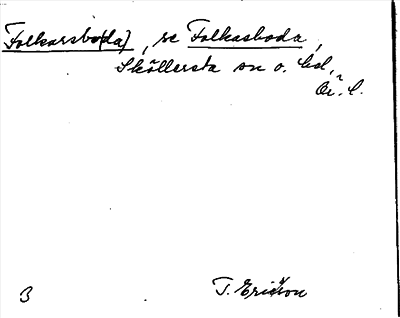 Folkarsbo(da), se Folkasboda,
Sköllersta sn o. hd,
Ör. l.
3 T. Ericson